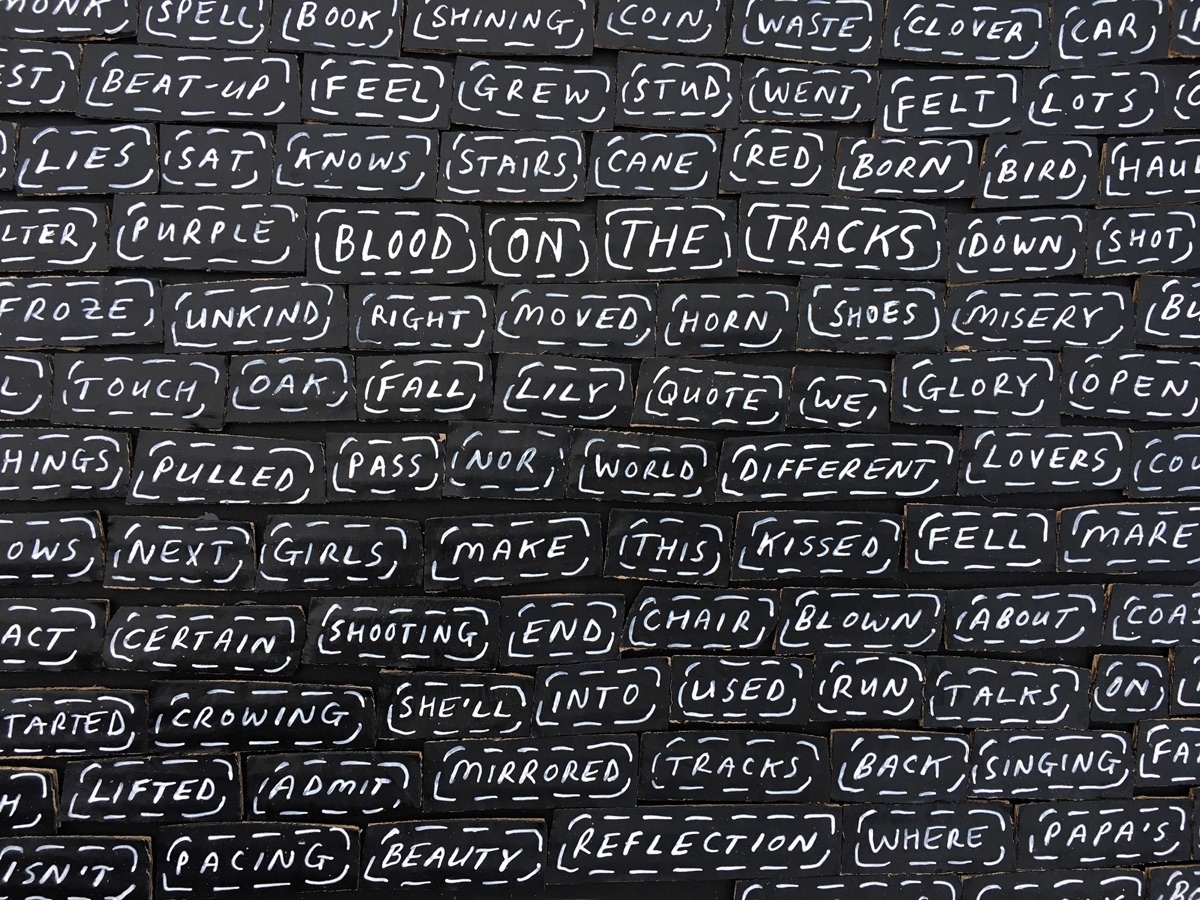 MONK SPELL BOOK SHINING COIN WASTE CLOVER CAR
EST BEAT-UP FEEL GREW STUD WENT FELT LOTS
LIES SAT KNOWS STAIRS CANE RED BORN BIRD HAU
LTER PURPLE BLOOD ON THE TRACKS DOWN SHOT
FROZE UNKIND RIGHT MOVED HORN SHOES MISERY BL
L TOUCH OAK FALL LILY QUOTE WE GLORY OPEN
HINGS PULLED PASS NOR WORLD DIFFERENT LOVERS COU
OWS NEXT GIRLS MAKE THIS KISSED FELL MARE
ACT CERTAIN SHOOTING END CHAIR BLOWN ABOUT COA
TARTED CROWING SHE'LL INTO USED RUN TALKS ON
H LIFTED ADMIT MIRRORED TRACKS BACK SINGING FA
ISN'T PACING BEAUTY REFLECTION WHERE PAPA'S